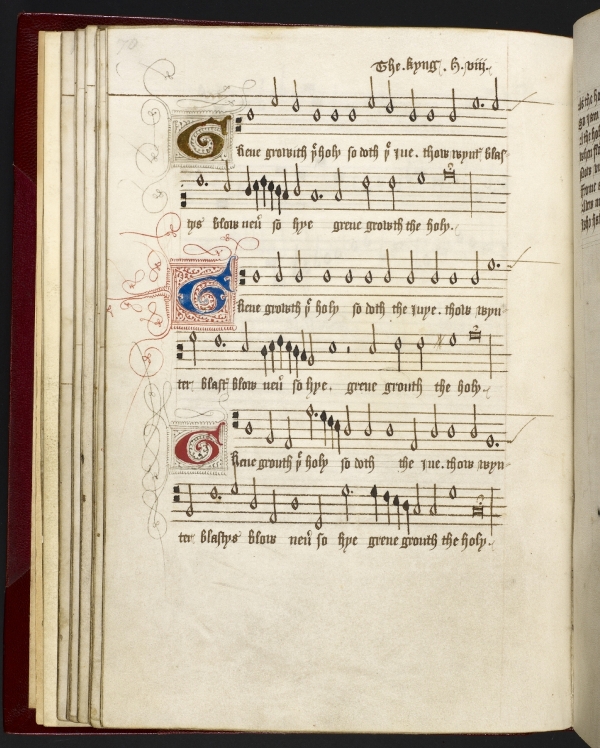 The . kyng . H . viii .
Grene growith yͤ holy so doth yͤ iue . thow wynt blas⸗
tys blow neuͬ so hye grene growth the holy .
Grene growth yͤ holy so doth the iuye . thow wyn⸗
ter blast blow neuͬ so hye . grene grouth the holy .
Grene grouth yͤ holy so doth the iue . thow wyn⸗
ter blastys blow neuͬ so hye grene grouth the holy .